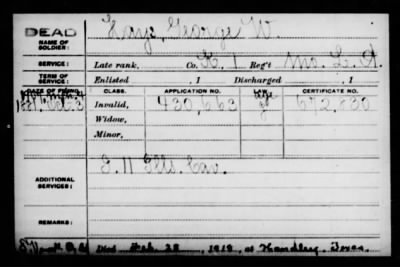 DEAD
NAME OF SOLDIER: Hays, George W.
SERVICE: Late rank, Co. K, 1 Reg't Mo. L. A.
TERM OF SERVICE: Enlisted , 1 Discharged , 1
DATE OF FILING. CLASS. APPLICATION NO. LAW. CERTIFICATE NO.
Oct. 3 Invalid, 430,663 672,830
Widow,
Minor,
ADDITIONAL SERVICES: F. 11 Ills. Cav.
REMARKS:
Died Feb. 28, 1918, at Handley, Texas.